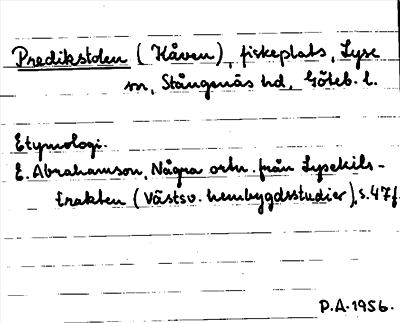 Predikstolen (Håven), fiskeplats, Lyse
sn, Stångenäs hd, Göteb. l.
Etymologi.
E. Abrahamson, Några ortn. från Lysekils-
trakten (Västsv. hembygdsstudier), s. 47 f.
P.A. 1956.